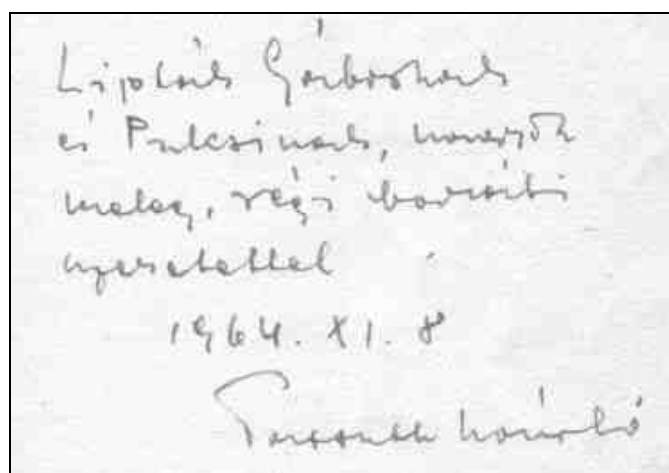 Lipták Gábornak
és Pulcsinak,
meleg, régi baráti
szeretettel
1964. XI. 8